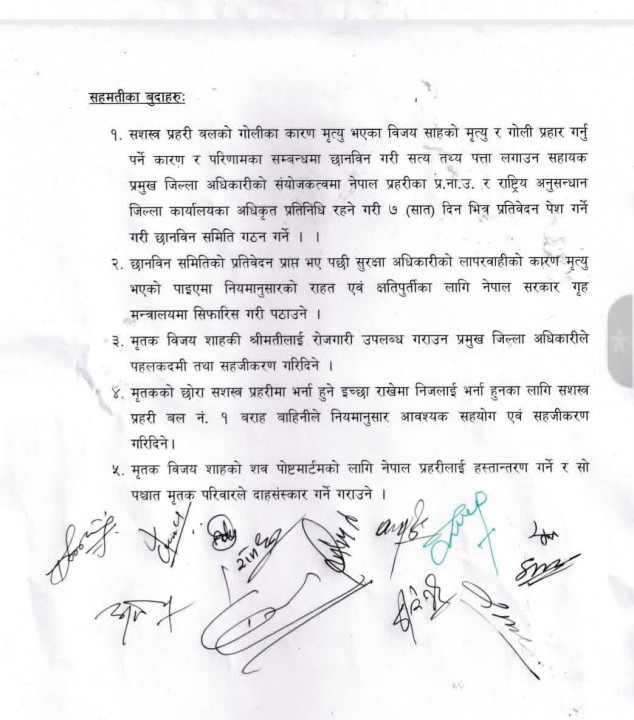 सहमतीका बुदाहरुः
१. सशस्त्र प्रहरी बलको गोलीका कारण मृत्यु भएका विजय साहको मृत्यु र गोली प्रहार गर्नु
पर्ने कारण र परिणामका सम्बन्धमा छानविन गरी सत्य तथ्य पत्ता लगाउन सहायक
प्रमुख जिल्ला अधिकारीको संयोजकत्वमा नेपाल प्रहरीका प्र.ना.उ. र राष्ट्रिय अनुसन्धान
जिल्ला कार्यालयका अधिकृत प्रतिनिधि रहने गरी ७ (सात) दिन भित्र प्रतिवेदन पेश गर्ने
गरी छानविन समिति गठन गर्ने । ।
२. छानविन समितिको प्रतिवेदन प्राप्त भए पछी सुरक्षा अधिकारीको लापरवाहीको कारण मृत्यु
भएको पाइएमा नियमानुसारको राहत एवं क्षतिपुर्तीका लागि नेपाल सरकार गृह
मन्त्रालयमा सिफारिस गरी पठाउने ।
३. मृतक विजय शाहकी श्रीमतीलाई रोजगारी उपलब्ध गराउन प्रमुख जिल्ला अधिकारीले
पहलकदमी तथा सहजीकरण गरिदिने ।
४. मृतकको छोरा सशस्त्र प्रहरीमा भर्ना हुने इच्छा राखेमा निजलाई भर्ना हुनका लागि सशस्त्र
प्रहरी बल नं. १ बराह वाहिनीले नियमानुसार आवश्यक सहयोग एवं सहजीकरण
गरिदिने।
५. मृतक विजय शाहको शव पोष्टमार्टमको लागि नेपाल प्रहरीलाई हस्तान्तरण गर्ने र सो
पश्चात मृतक परिवारले दाहसंस्कार गर्ने गराउने ।